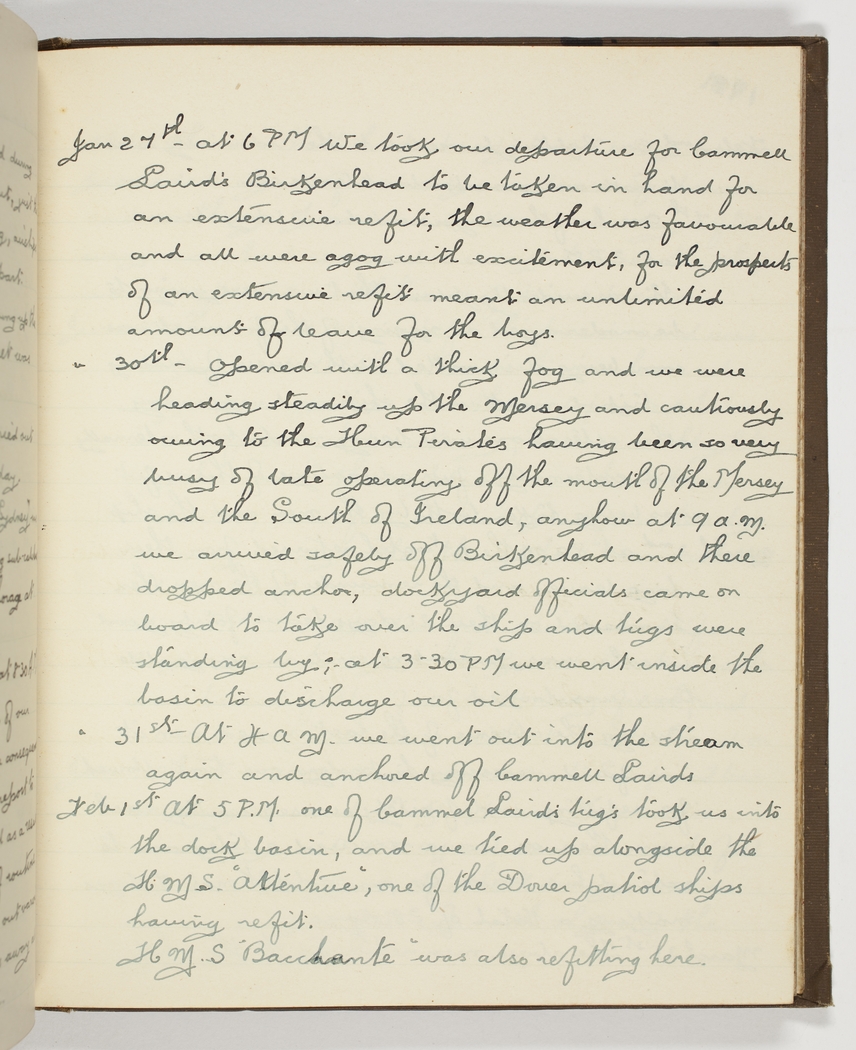 Jan 27th - at 6 PM We took our departure for Cammell
Laird's Birkenhead to be taken in hand for
an extensive refit, the weather was favourable
and all were agog with excitement, for the prospects
of an extensive refit meant an unlimited
amount of leave for the boys.
" 30th - Opened with a thick fog and we were
heading steadily up the Mersey and cautiously
owing to the Hun Pirates having been so very
busy of late operating off the mouth of the Mersey
and the South of Ireland, anyhow at 9 a.m.
we arrived safely off Birkenhead and there
dropped anchor, dockyard officials came on
board to take over the ship and tugs were
standing by ;- at 3-30 PM we went inside the
basin to discharge our oil
" 31st - At 4 A M. we went out into the stream
again and anchored off Cammell Lairds
Feb 1st At 5 P.M. one of Cammel Lairds tug's took us into
the dock basin, and we tied up alongside the
H M S. "Attentive", one of the Dover patrol ships
having refit.
H M. S "Bacchante" was also refitting here.